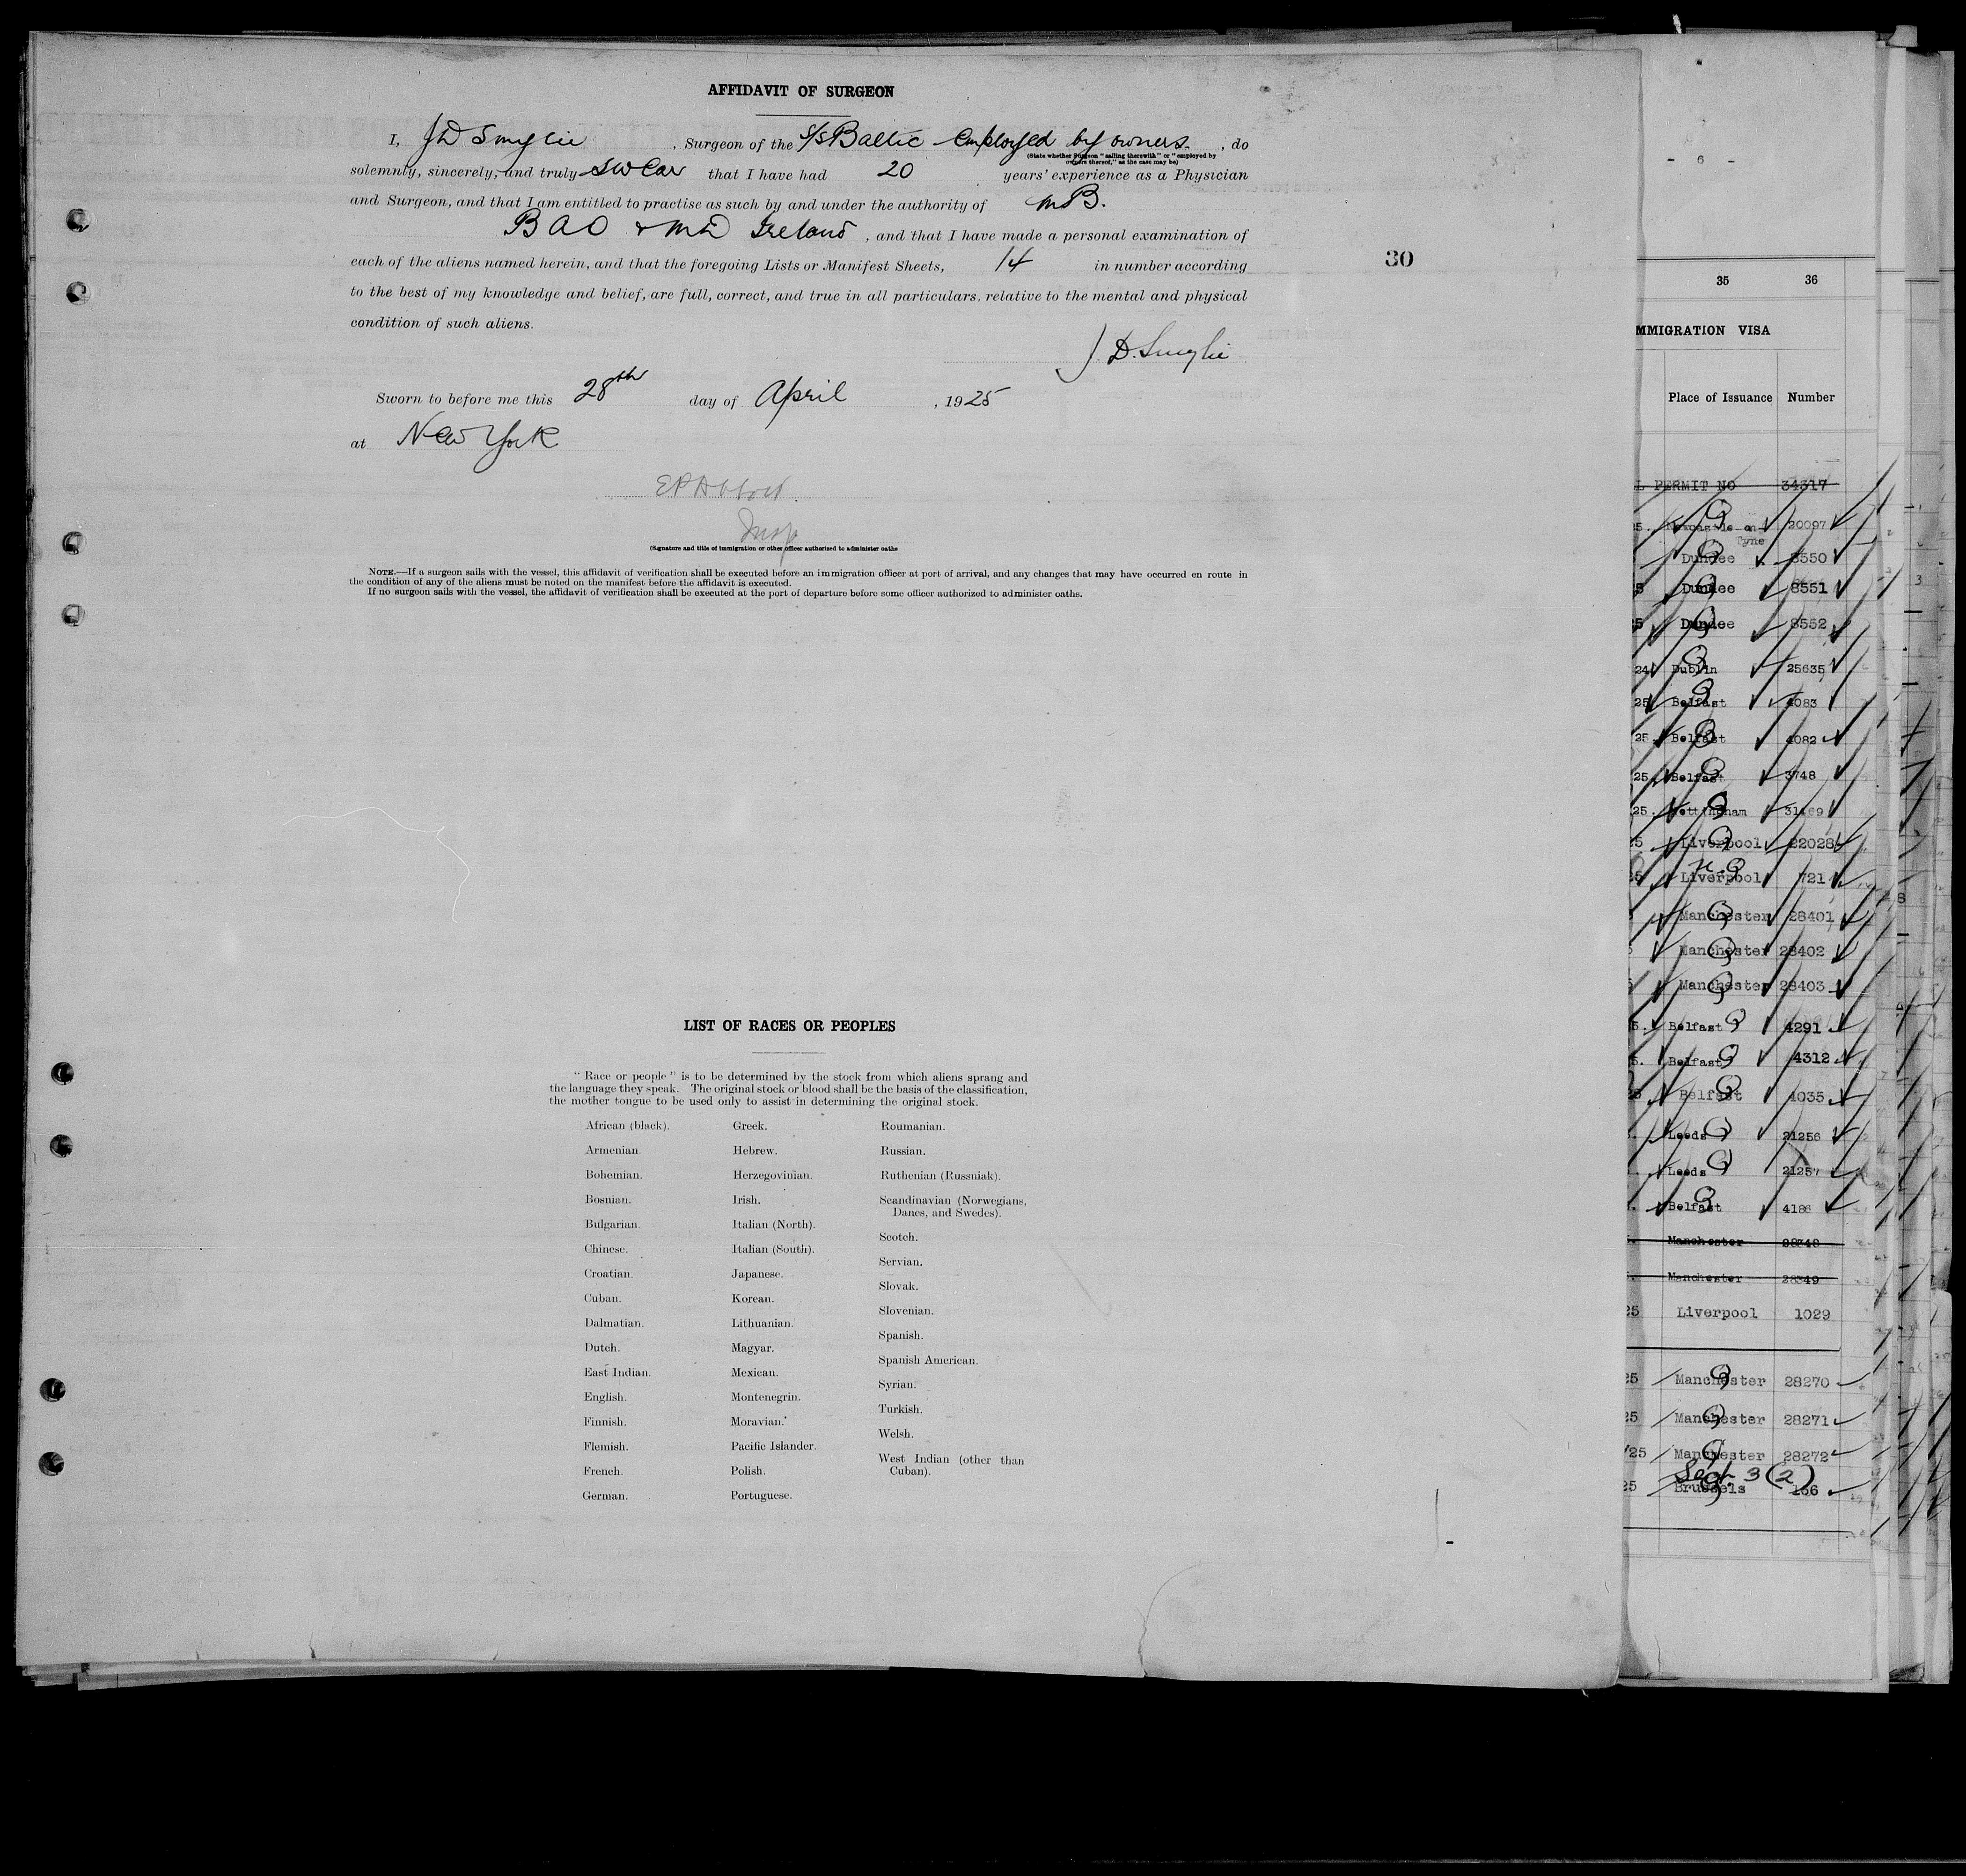 AFFIDAVIT OF SURGEON
I, J D Smylie, Surgeon of the S/S Baltic employed by owners, do
(State whether Surgeon "sailing therewith" or "employed by
owners thereof," as the case may be)
solemnly, sincerely, and truly swear that I have had 20 years' experience as a Physician
and Surgeon, and that I am entitled to practise as such by and under the authority of MB.
BAO & MD Ireland, and that I have made a personal examination of
each of the aliens named herein, and that the foregoing Lists or Manifest Sheets, 14 in number according
to the best of my knowledge and belief, are full, correct, and true in all particulars, relative to the mental and physical
condition of such aliens.
J. D. Smylie
Sworn to before me this 28th day of April, 1925
at New York
Insp
(Signature and title of immigration or other officer authorized to administer oaths
NOTE.—If a surgeon sails with the vessel, this affidavit of verification shall be executed before an immigration officer at port of arrival, and any changes that may have occurred en route in
the condition of any of the aliens must be noted on the manifest before the affidavit is executed.
If no surgeon sails with the vessel, the affidavit of verification shall be executed at the port of departure before some officer authorized to administer oaths.
30
LIST OF RACES OR PEOPLES
"Race or people" is to be determined by the stock from which aliens sprang and
the language they speak. The original stock or blood shall be the basis of the classification,
the mother tongue to be used only to assist in determining the original stock.
African (black).
Armenian.
Bohemian.
Bosnian.
Bulgarian.
Chinese.
Croatian.
Cuban.
Dalmatian.
Dutch.
East Indian.
English.
Finnish.
Flemish.
French.
German.
Greek.
Hebrew.
Herzegovinian.
Irish.
Italian (North).
Italian (South).
Japanese.
Korean.
Lithuanian.
Magyar.
Mexican.
Montenegrin.
Moravian.
Pacific Islander.
Polish.
Portuguese.
Roumanian.
Russian.
Ruthenian (Russniak).
Scandinavian (Norwegians,
Danes, and Swedes).
Scotch.
Servian.
Slovak.
Slovenian.
Spanish.
Spanish American.
Syrian.
Turkish.
Welsh.
West Indian (other than
Cuban).
- 6 -
35 36
MMIGRATION VISA
Place of Issuance Number
PERMIT NO 34317
Newcastle on 20097
Tyne
Dundee 8550
Dundee 8551
Dundee 8552
24 Dublin 25635
25 Belfast 4083
25. Belfast 4082
25. Belfast 3748
25. Nottingham
25 Liverpool 22028
25 Liverpool 721
Manchester 28401
Manchester 28402
Manchester 28403
5. Belfast 4291
5. Belfast 4312
Belfast 4035
Leeds 21256
Leeds 21257
Belfast 4186
Manchester 28348
Manchester 28349
25 Liverpool 1029
25 Manchester 28270
25 Manchester 28271
/25 Manchester 28272
Sect 3 (2)
25 Brussels 156